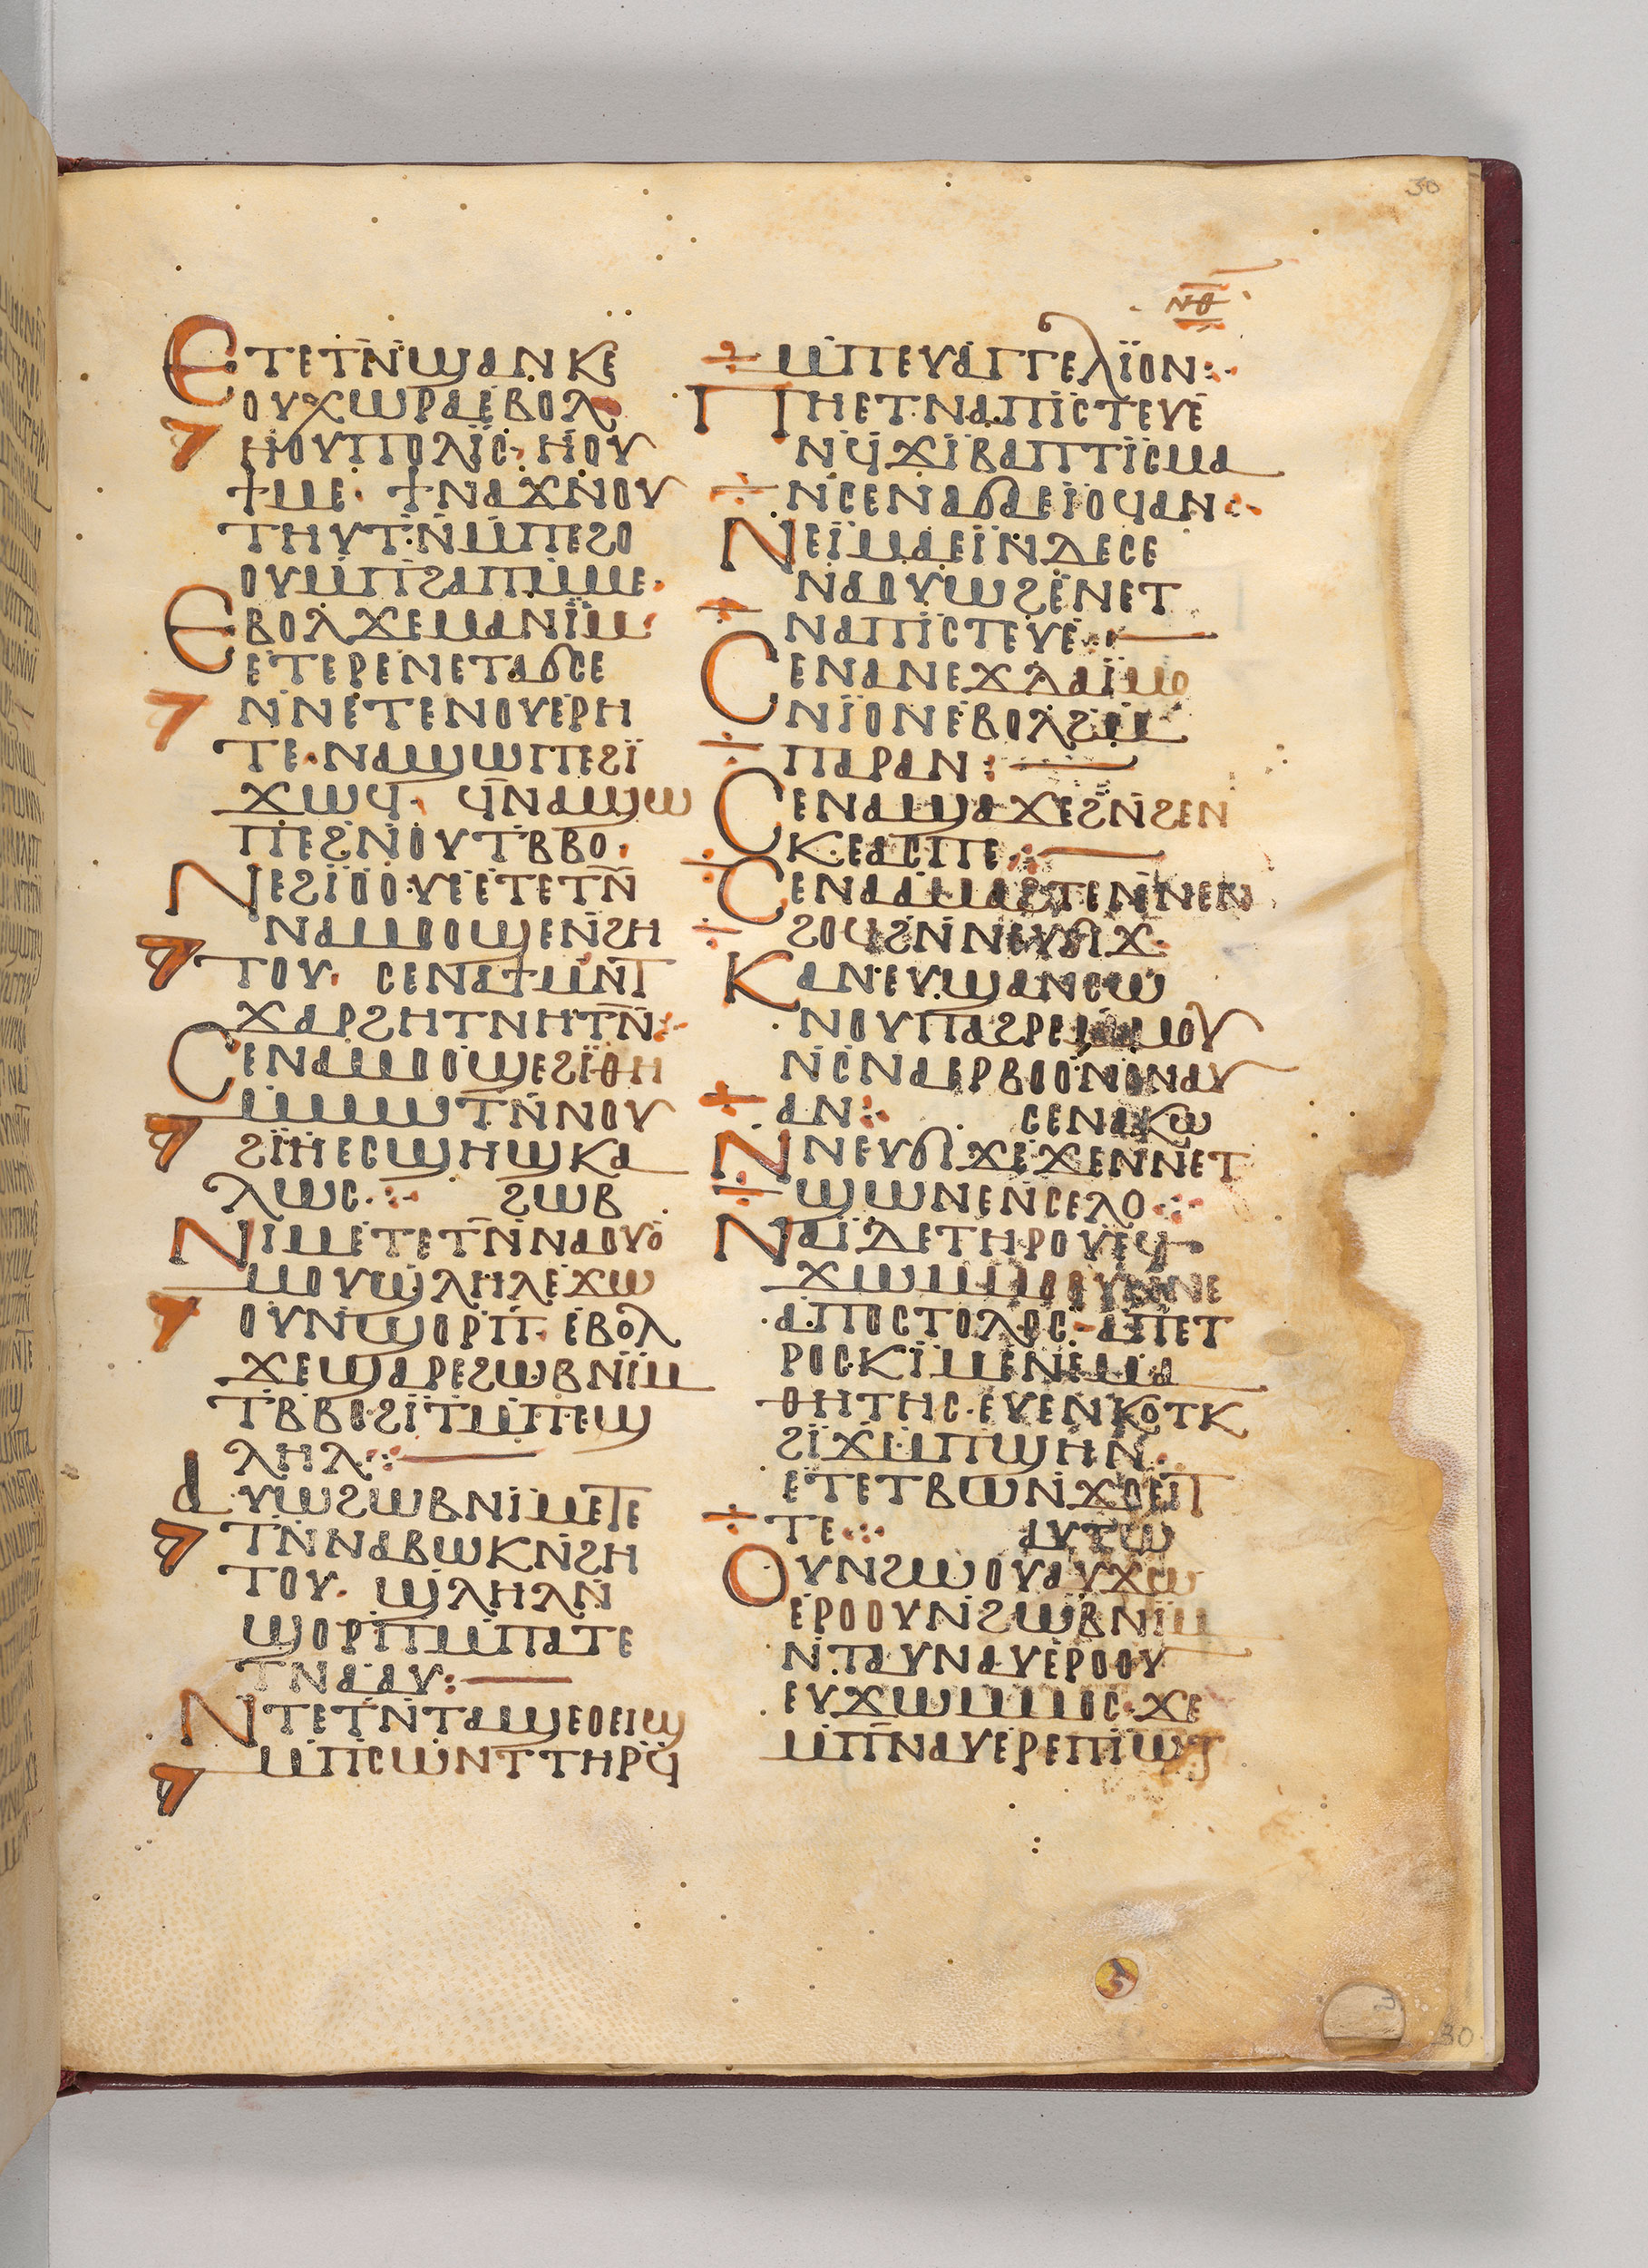 30
ⲛⲑ
ⲉⲧⲉⲧⲛ̄ϣⲁⲛⲕⲉ
ⲟⲩⲭⲱⲣⲁⲉⲃⲟⲗ
ⲏⲟⲩⲡⲟⲗⲓ̈ⲥ· ⲏⲟⲩ
ϯⲙⲉ· ϯⲛⲁϫⲛⲟⲩ
ⲧⲏⲩⲧⲛ̄ⲙ̄ⲡⲉϩⲟ
ⲟⲩⲙ̄ⲡϩⲁⲡⲙ̄ⲙⲉ·
ⲉⲃⲟⲗϫⲉⲙⲁⲛⲓ̈ⲙ
ⲉⲧⲉⲣⲉⲛⲉⲧⲁϭⲥⲉ
ⲛ̄ⲛⲉⲧⲉⲛⲟⲩⲉⲣⲏ
ⲧⲉ·ⲛⲁϣⲱⲡⲉϩⲓ̈
ϫⲱϥ· ϥ̄ⲛⲁϣⲱ
ⲡⲉϩⲛ̄ⲟⲩⲧⲃ̄ⲃⲟ·
ⲛⲉϩⲓ̈ⲟⲟⲩⲉⲉⲧⲉⲧⲛ̄
ⲛⲁⲙⲟⲟϣⲉⲛ̄ϩⲏ
ⲧⲟⲩ· ⲥⲉⲛⲁϯⲙⲛ̄ⲧ
ⲭⲁⲣϩⲏⲧⲛⲏⲧⲛ̄
ⲥⲉⲛⲁⲙⲟⲟϣⲉϩⲓ̈ⲑⲏ
ⲙ̄ⲙⲱⲧⲛ̄ⲛⲟⲩ
ϩⲓ̈ⲏⲉⲥϣⲏϣⲕⲁ
ⲗⲱⲥ·: ϩⲱⲃ
ⲛⲓⲙⲉⲧⲉⲧⲛ̄ⲛⲁⲟⲩⲟ
ⲙⲟⲩϣⲗⲏⲗⲉϫⲱ
ⲟⲩⲛ̄ϣⲟⲣⲡ̄· ⲉⲃⲟⲗ
ϫⲉϣⲁⲣⲉϩⲱⲃⲛⲓ̈ⲙ
ⲧⲃ̄ⲃⲟ·ϩⲓ̈ⲧⲙ̄ⲡⲉϣ
ⲗⲏⲗ·:
ⲁⲩⲱϩⲱⲃⲛⲓⲙⲉⲧⲉ
ⲧⲛ̄ⲛⲁⲃⲱⲕⲛ̄ϩⲏ
ⲧⲟⲩ· ϣⲗⲏⲗⲛ̄
ϣⲟⲣⲡ̄ⲙ̄ⲡⲁⲧⲉ
ⲧⲛⲁⲁⲩ:
ⲛⲧⲉⲧⲛ̄ⲧⲁϣⲉⲟⲉⲓϣ
ⲙ̄ⲡⲥⲱⲛⲧⲧⲏⲣϥ̄
ⲙ̄ⲡⲉⲩⲁⲅⲅⲉⲗⲓ̈ⲟⲛ:
ⲡⲏⲉⲧⲛⲁⲡⲓⲥⲧⲉⲩⲉ
ⲛϥ̄ϫⲓⲃⲁⲡⲧⲓ̈ⲥⲙⲁ
ⲛ̄ⲥⲉⲛⲁϭⲁⲉⲓⲟϥⲁⲛ
ⲛⲉⲓ̈ⲙⲁⲉⲓ̈ⲛⲇⲉⲥⲉ
ⲛⲁⲟⲩⲱϩⲉⲛⲉⲧ
ⲛⲁⲡⲓⲥⲧⲉⲩⲉ:
ⲥⲉⲛⲁⲛⲉϫⲇⲁⲓ̈ⲙⲟ
ⲛⲓ̈ⲟⲛⲉⲃⲟⲗϩⲙ̄
ⲡⲁⲣⲁⲛ:
ⲥⲉⲛⲁϣⲁϫⲉϩⲛ̄ϩⲉⲛ
ⲕⲉⲁⲥⲡⲉ:
ⲥⲉⲛⲁⲁⲙⲁϩⲧⲉⲛ̄ⲛⲉⲛ
ϩⲟϥϩⲛ̄ⲛⲉⲩϭⲓϫ
ⲕⲁⲛⲉⲩϣⲁⲛⲥⲱ
ⲛⲟⲩⲡⲁϩⲣⲉⲙ̄ⲙⲟⲩ
ⲛ̄ⲥⲛⲁⲉⲣⲃⲟⲟⲛⲟⲛⲁⲩ
ⲁⲛ: ⲥⲉⲛⲁⲕⲱ
ⲛⲛⲉⲩϭⲓϫⲉϫⲉⲛⲛⲉⲧ
ϣⲱⲛⲉⲛ̄ⲥⲉⲗⲟ·:
ⲛⲁⲓ̈ⲇⲉⲧⲏⲣⲟⲩⲉϥ
ϫⲱⲙ̄ⲙⲟⲟⲩⲉⲛⲛⲉ
ⲁⲡⲟⲥⲧⲟⲗⲟⲥ·ⲁⲡⲉⲧ
ⲣⲟⲥⲕⲓⲙⲉⲛ̄ⲉⲙⲁ
ⲑⲏⲧⲏⲥ·ⲉⲩⲉⲛⲕⲟⲧⲕ
ϩⲓ̈ϫⲙ̄ⲡϣⲏⲛ·
ⲉⲧⲉⲧⲃⲱⲛ̄ϫⲟⲉⲓⲧ
ⲧⲉ·: ⲁⲩⲧⲱ
ⲟⲩⲛϩⲱⲟⲩⲁⲩϫⲱ
ⲉⲣⲟⲟⲩⲛ̄ϩⲱⲃⲛⲓⲙ
ⲛ̄ⲧⲁⲩⲛⲁⲩⲉⲣⲟⲟⲩ
ⲉⲩϫⲱⲙⲙⲟⲥ·ϫⲉ
ⲙ̄ⲡⲛ̄ⲛⲁⲩⲉⲣⲉⲡⲓ̈ⲱⲧ
30